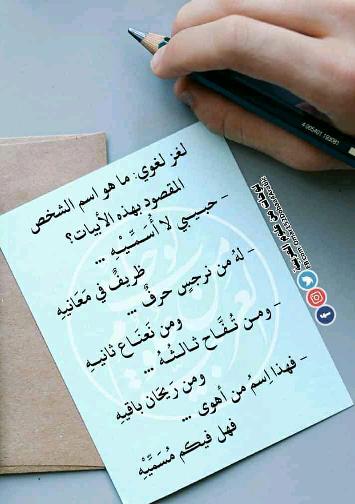 لغز لغوي: ما هو اسم الشخص
المقصود بهذه الأبيات؟
- حبيبي لا أُسَمِّيْهِ ...
ظريفٌ في مَعَانِيهِ
- لهُ من نرجسٍ حرفٌ ...
ومن نَعنَاع ثانيهِ
- ومن تُفَّاح ثالثُهُ ...
ومن رَيحَان باقيهِ
- فهذا إسمُ من أهوى ...
فهل فيكم مُسَمِّيْهِ